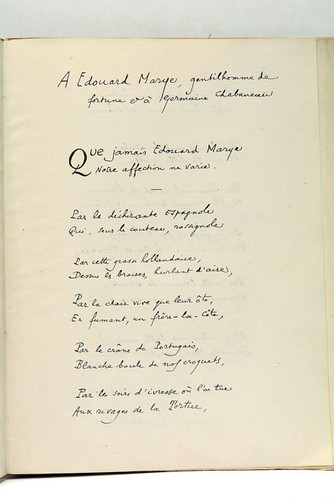 A Edouard Marye, gentilhomme de
fortune et à Germaine Chabaneau
Que jamais Edouard Marye
Notre affection ne varie.
Par la déchirante Espagnole
Qui, sous le couteau, rossignole
Par cette grasse hollandaise,
Dessus les braises, hurlant d'aise,
Par la chair vive que leur ôte,
En fumant, un frère-la-Côte,
Par le crâne de Portugais,
Blanche boule de nos croquets,
Par les soirs d'ivresse où l'on tue
Aux rivages de la Tortue,